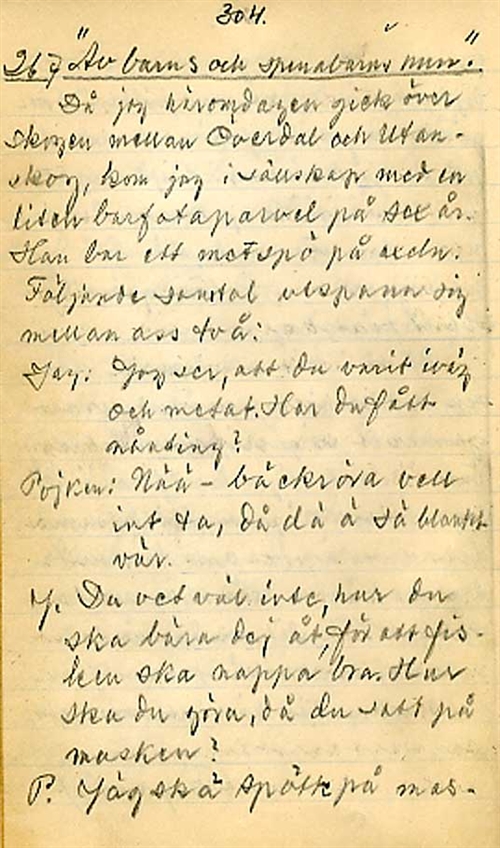 304.
267 "Av barns och spenabarns mun".
Då jag häromdagen gick över
skogen mellan Överdal och Utan-
skog, kom jag i sällskap med en
liten barfotaparvel på sex år.
Han bar ett metspö på axeln.
Följande samtal utspann sig
mellan oss två:
Jag: Jag ser, att du varit iväg
och metat. Har du fått
nånting?
Pojken: Nää - bäckröa vell
int ta, då dä ä så blankt
vär.
J. Du vet väl inte, hur du
ska bära dej åt, för att fis-
ken ska nappa bra. Hur
ska du göra, då du satt på
masken?
P. Jäg skä spött på mas-